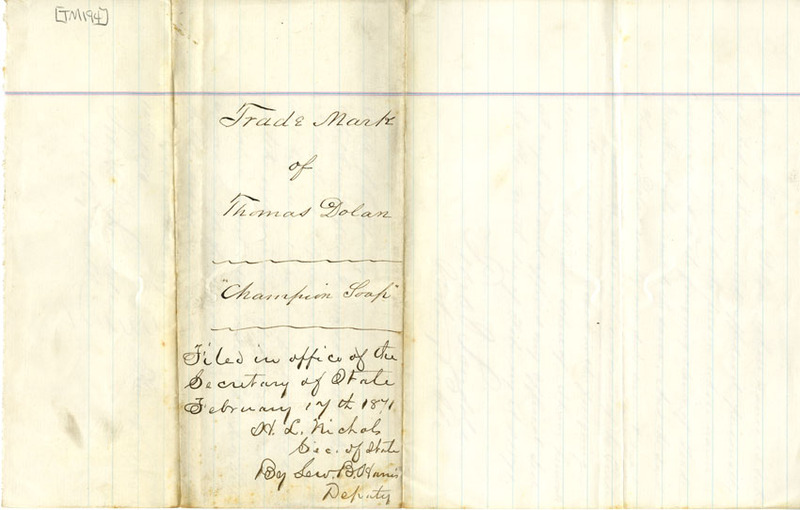 [TM194]
Trade Mark
of
Thomas Dolan
"Champion Soap"
Filed in office of the
Secretary of State
February 17th 1871
H. L. Nichols
Sec. of State
By Lew. B. Harris
Deputy